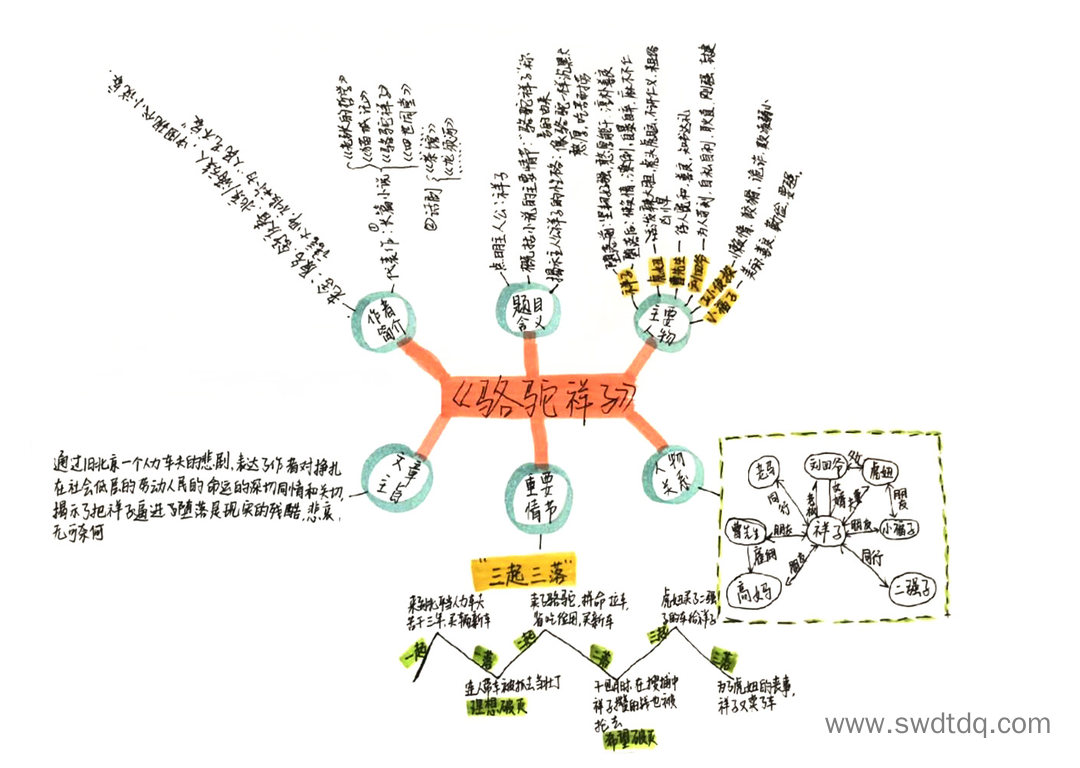 《骆驼祥子》
作者
简介
老舍：原名：舒庆春 北京满族人，中国现代小说家
语言大师，被称为"人民艺术家"
代表作：
①长篇小说
《老张的哲学》
《猫城记》
《骆驼祥子》
《四世同堂》
②话剧
《茶馆》
《龙须沟》
题目
含义
点明主人公：祥子
概括小说的主要情节："骆驼祥子"称
号的由来
揭示主人公祥子的性格：像骆驼一样沉默
憨厚，吃苦耐劳
主要
人物
祥子
堕落前：坚韧
堕落后：
虎妞
曹先生
刘四爷
二强子
小福子
文章
主旨
通过旧北京一个人力车夫的悲剧，表达了作者对挣扎
在社会低层的劳动人民的命运的深切同情和关切，
揭示了把祥子逼进了堕落是现实的残酷，悲哀，
无可奈何
重要
情节
"三起三落"
来到北平当人力车夫
苦干三年，买辆新车
卖了骆驼，拼命拉车，
省吃俭用，买新车
虎妞买了二强
子的车给祥子
一起
一落
二起
二落
三起
三落
连人带车被抓去当壮丁
理想破灭
干包月时，在搜捕中
祥子攒的钱也被
抢去
希望破灭
为了虎妞的丧事，
祥子又卖了车
人物
关系
老马
刘四爷
虎妞
同行
朋友
曹先生
朋友
祥子
朋友
小福子
雇佣
朋友
同行
高妈
二强子
www.swdtdq.com